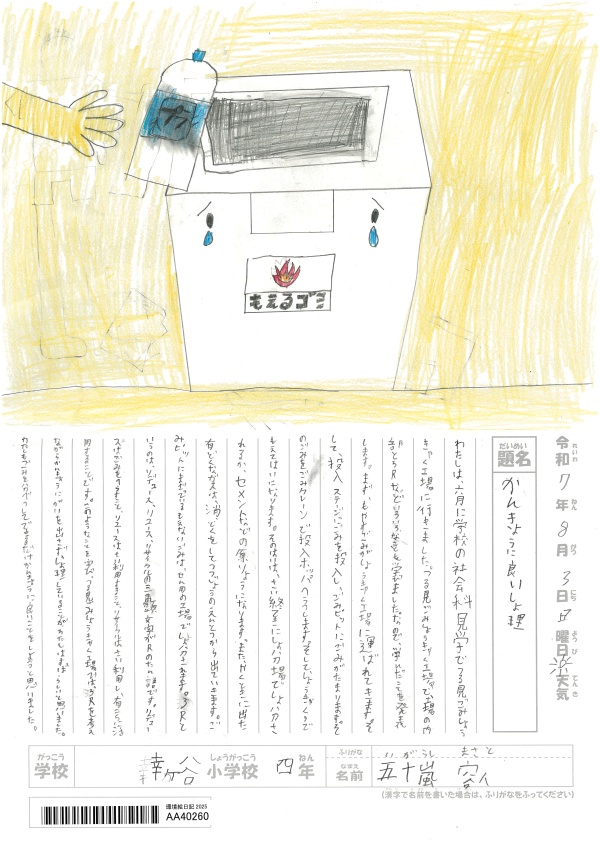 カ
もえるゴミ
令和7年8月3日日曜日 天気
れいわ ねん がつ にち ようび てんき
だいめい
題名
かんきょうに良いしょ理
わたしは、六月に学校の社会科見学でつる見ごみしょう
きゃく工場に行きました。つる見ごみしょうきゃく工場で工場の内
部と3Rなどいろいろなことを学びました。なので、学んだことを発表
します。まず、もやすごみがしょうきゃく工場に運ばれてきます。そ
して、投入ステージにごみを投入し、ごみピットにごみがたまります。そ
のごみをごみクレーンで投入ホッパへうつします。そして、しょうきゃくろで
もえてはいになります。そのはいは、さい終てきにしょ分場でしょ分さ
れるか、セメントなどの原りょうになります。また、やくときに出た
有どくなガスは、消どくをしてつごうのえんとつから出ていきます。ご
みピットにまざてるもえないごみは、せん用の工場でしょ分されます。3Rと
いうのは、リデュース、リユース、リサイクルの三つの頭文字がRのため3Rです。リデュー
スはごみをへらすこと、リユースはさい利用すること、リサイクルはさい利用し、
用することです。このようなことを学び、つる見ごみしょうきゃく工場では3Rを考え
ながらかんきょうにがいを出さずしょ理していることがわたしはすばらしいと思いました。
わたしもごみを分けるなどかんきょうに良いことをしようと思いました。
がっこう
学校
幸ケ谷
しょうがっこう
小学校
四
ねん
年
ふりがな
いがらし まさと
なまえ
名前
五十嵐 容人
(漢字で名前を書いた場合は、ふりがなをふってください)
環境絵日記 2025
AA40260